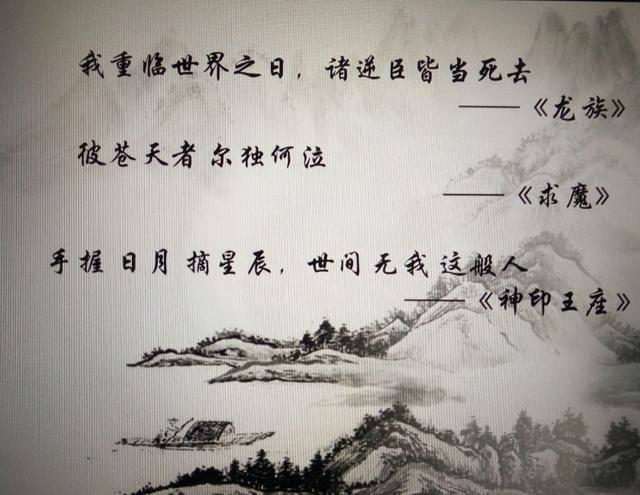 我重临世界之日，诸逆臣皆当死去
——《龙族》
彼苍天者 尔独何泣
——《求魔》
手握 日月 摘星辰，世间 无我 这般人
——《神印王座》